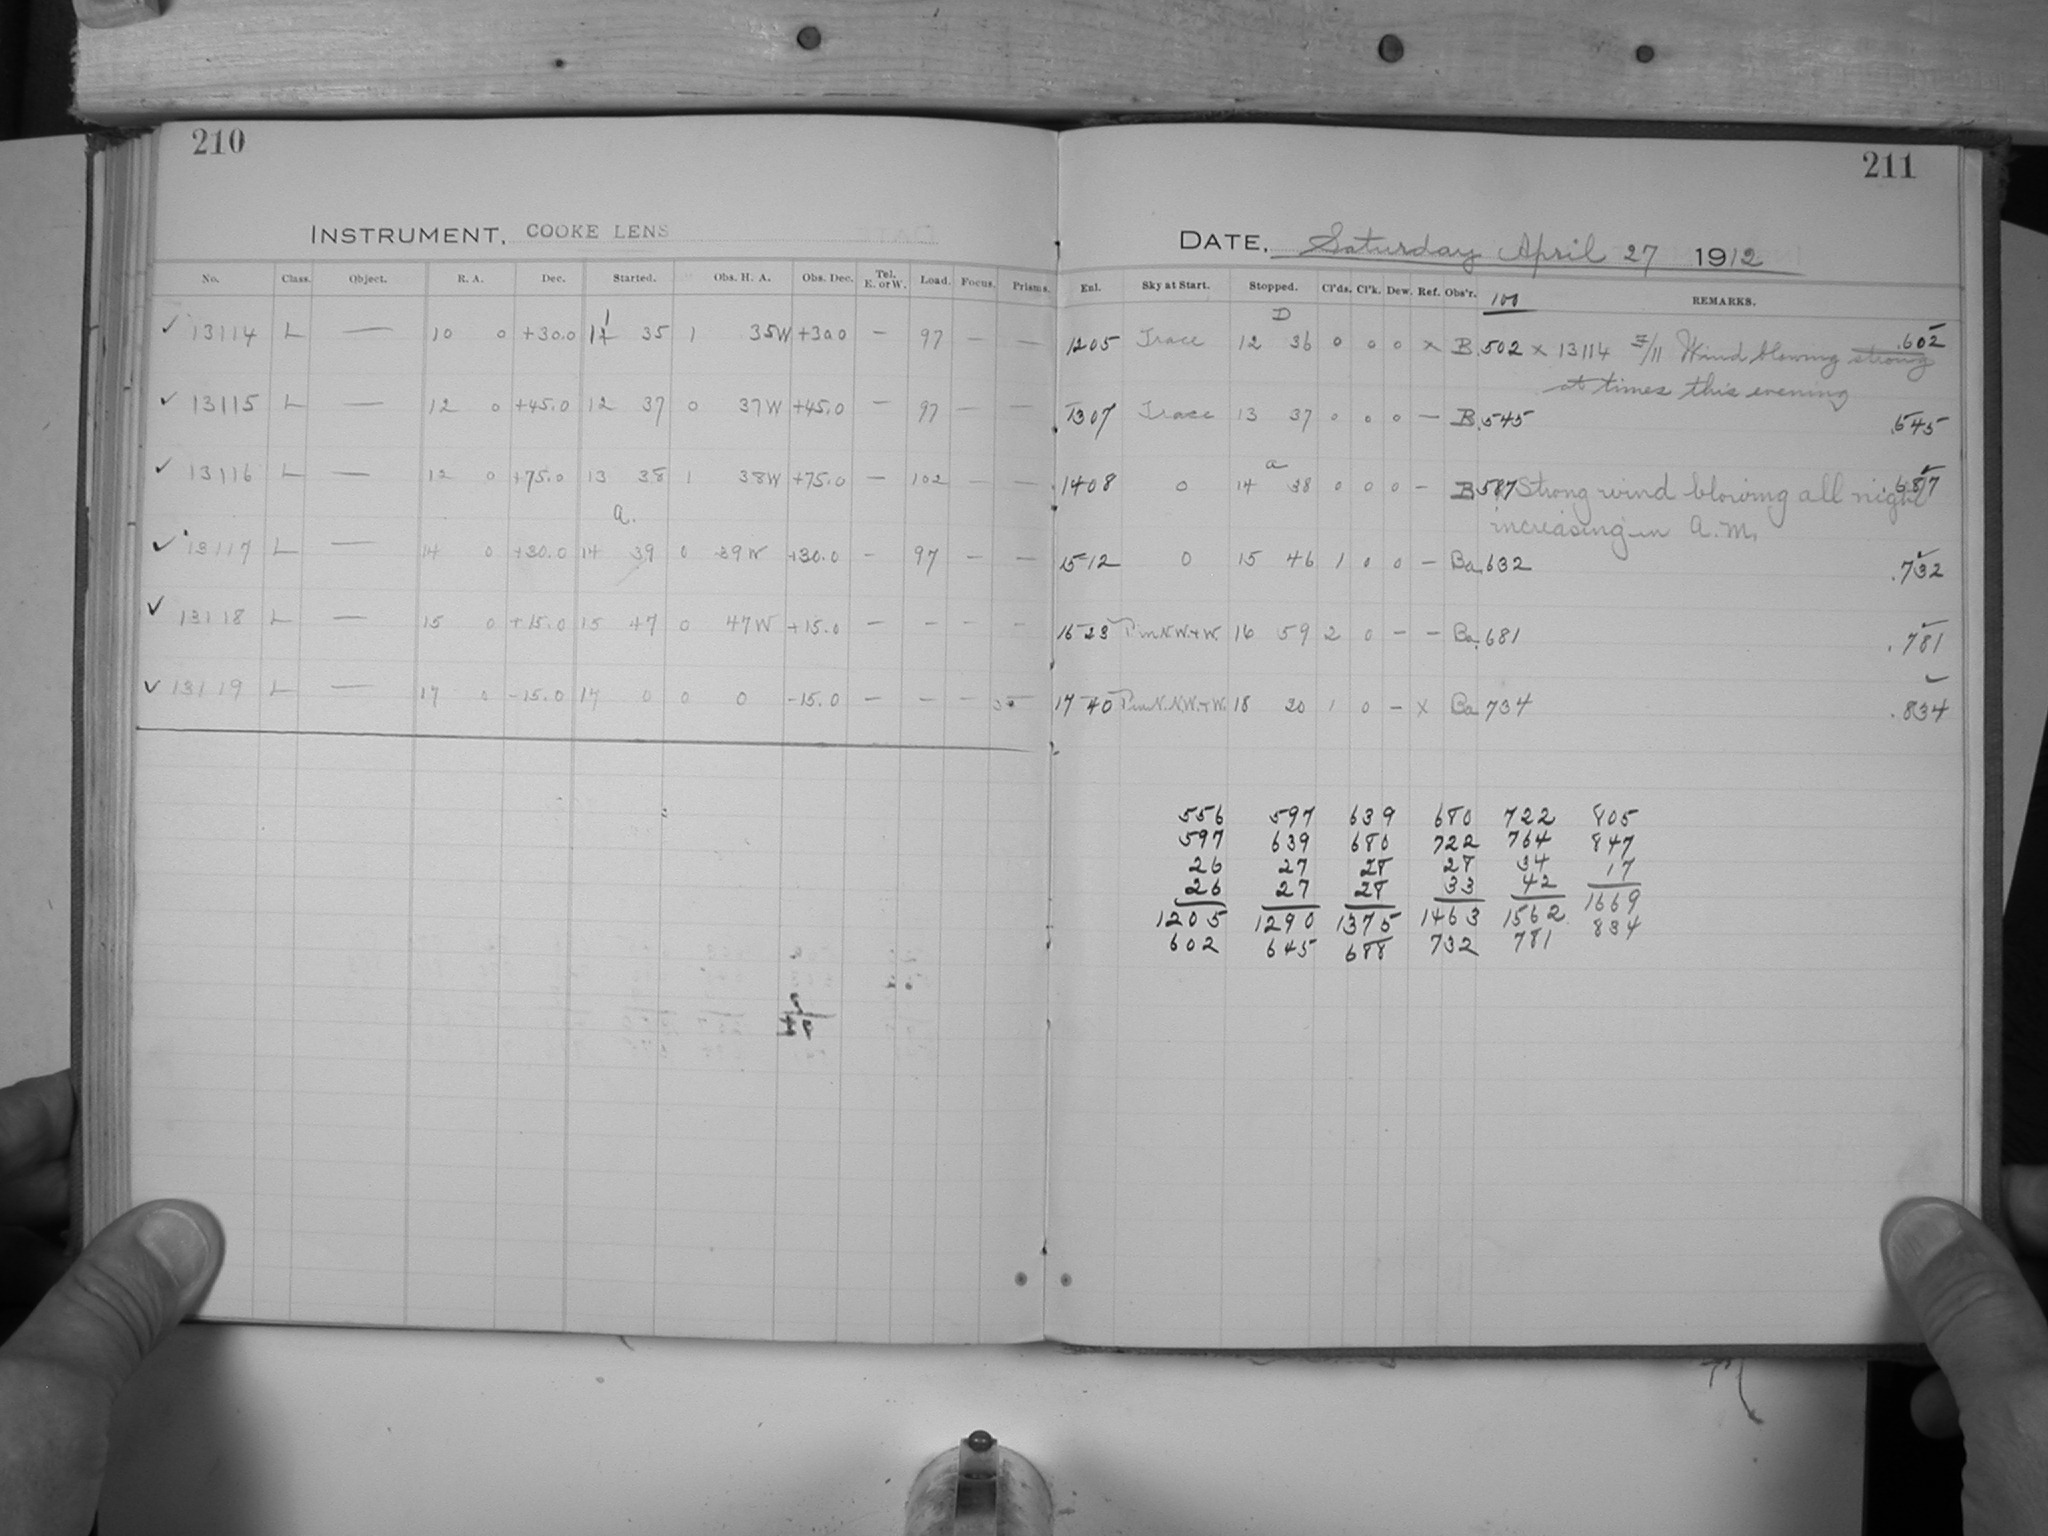 210
211
INSTRUMENT, COOKE LENS
DATE, Saturday April 27 1912
No. Class. Object. R. A. Dec. Started. Obs. H. A. Obs. Dec. Tel. E. or W. Load. Focus. Prisms. Enl. Sky at Start. Stopped. Cl'ds. Cl'k. Dew. Ref. Obs'r. 100 REMARKS.
D
✓ 13114 L — 10 0 +30.0 35 1 35W +30.0 — 97 — — 1205 Trace 12 36 0 0 0 x B .502 x 13114 Wind blowing strong .602
at times this evening
✓ 13115 L — 12 0 +45.0 12 37 0 37W +45.0 — 97 — — 1307 Trace 13 37 0 0 0 — B .545 .645
a
✓ 13116 L — 12 0 +75.0 13 38 1 38W +75.0 — 102 — — 1408 0 14 38 0 0 0 — B .587 Strong wind blowing all night .687
increasing in A.M.
a.
✓ 13117 L — 14 0 +30.0 14 39 0 39W +30.0 — 97 — — 1512 0 15 46 1 0 0 — Ba .632 .732
✓ 13118 L — 15 0 +15.0 15 47 0 47W +15.0 — — — — 1623 N.W.+W. 16 59 2 0 — — Ba .681 .781
✓ 13119 L — 17 0 -15.0 17 0 0 0 -15.0 — — — 1740 N.N.W.+W. 18 20 1 0 — x Ba 734 .834
556 597 639 680 722 805
597 639 680 722 764 847
26 27 28 28 34 17
26 27 28 33 42
1205 1290 1375 1463 1562 1669
602 645 688 732 781 834